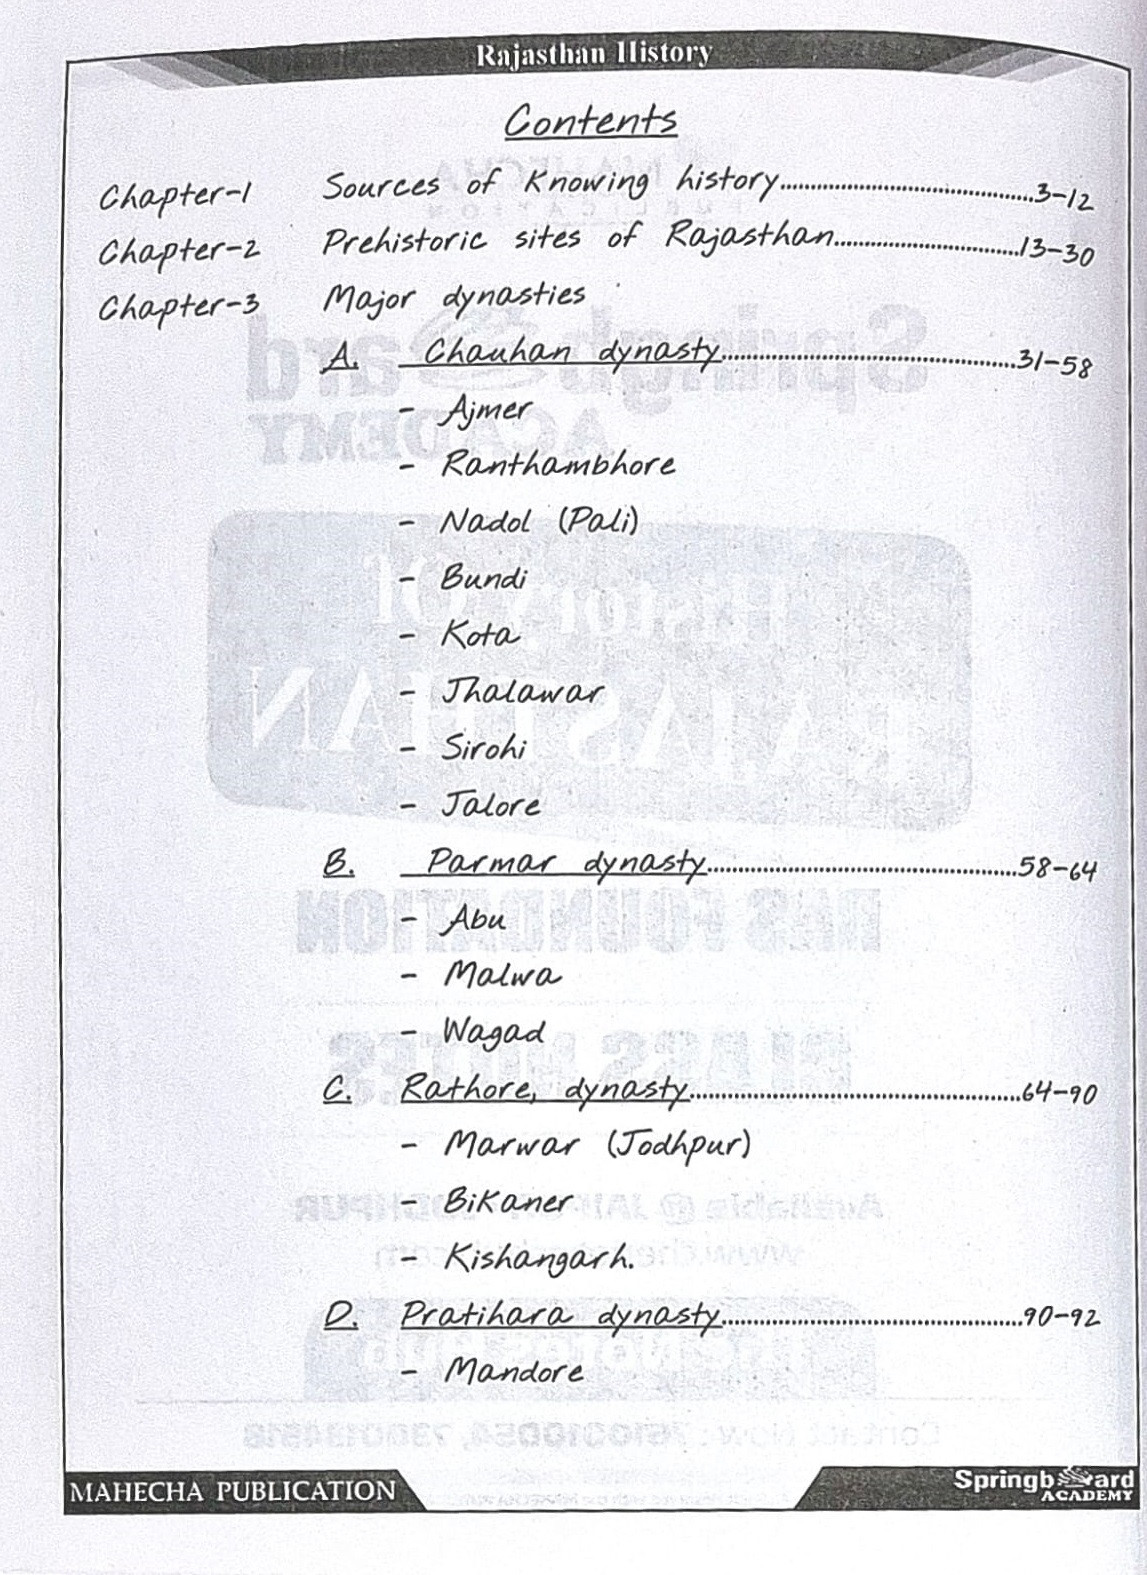 Rajasthan History
Contents
Chapter-1 Sources of Knowing history..........3-12
Chapter-2 Prehistoric sites of Rajasthan..........13-30
Chapter-3 Major dynasties
A. Chauhan dynasty..........31-58
- Ajmer
- Ranthambhore
- Nadol (Pali)
- Bundi
- Kota
- Jhalawar
- Sirohi
- Jalore
B. Parmar dynasty..........58-64
- Abu
- Malwa
- Wagad
C. Rathore, dynasty..........64-90
- Marwar (Jodhpur)
- Bikaner
- Kishangarh.
D. Pratihara dynasty..........90-92
- Mandore
MAHECHA PUBLICATION
Springboard
ACADEMY